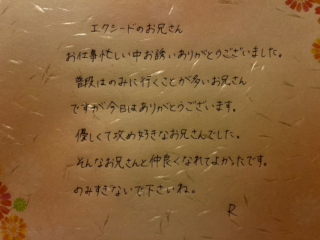 エクシードのお兄さん
お仕事忙しい中お誘いありがとうございました。
普段はのみに行くことが多いお兄さん
ですが今日はありがとうございます。
優しくて攻め好きなお兄さんでした。
そんなお兄さんと仲良くなれてよかったです。
のみすぎないで下さいね。
R